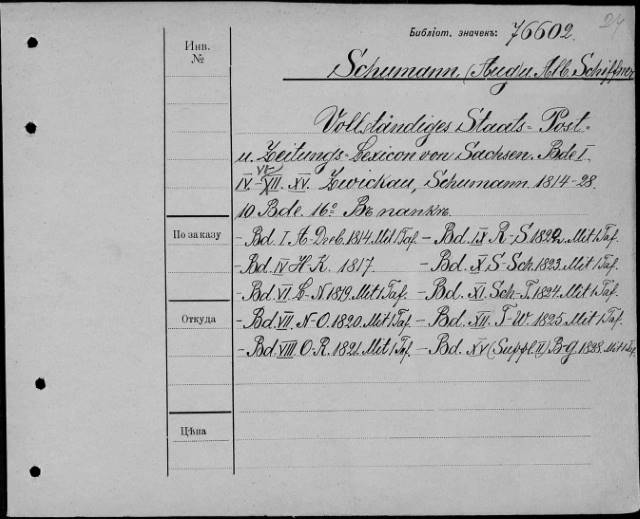 24
Библіот. значекъ: 76602.
Инв.
№
Schumann. (Aug. u. Alb. Schiffner
Vollständiges Staats- Post-
u. Zeitungs-Lexicon von Sachsen. Bde I
VI
IV.-XII. XV. Zwickau, Schumann. 1814-28.
10 Bde. 16º Въ папкъ.
По заказу
- Bd. I A-Dreb. 1814. Mit 1 Taf. - Bd. IX R-S. 1822. Mit 1 Taf.
- Bd. IV H-K. 1817. - Bd. X S-Sch. 1823. Mit 1 Taf.
- Bd. VI. L-N 1819. Mit 1 Taf. - Bd. XI. Sch-T. 1824. Mit 1 Taf.
Откуда
- Bd. VII. N-O. 1820. Mit 1 Taf. - Bd. XII. T-W. 1825 Mit 1 Taf.
- Bd. VIII. O-R. 1821. Mit 1 Taf. - Bd. XV (Suppl. II) B-G. 1828. Mit 1 Taf.
Цѣна